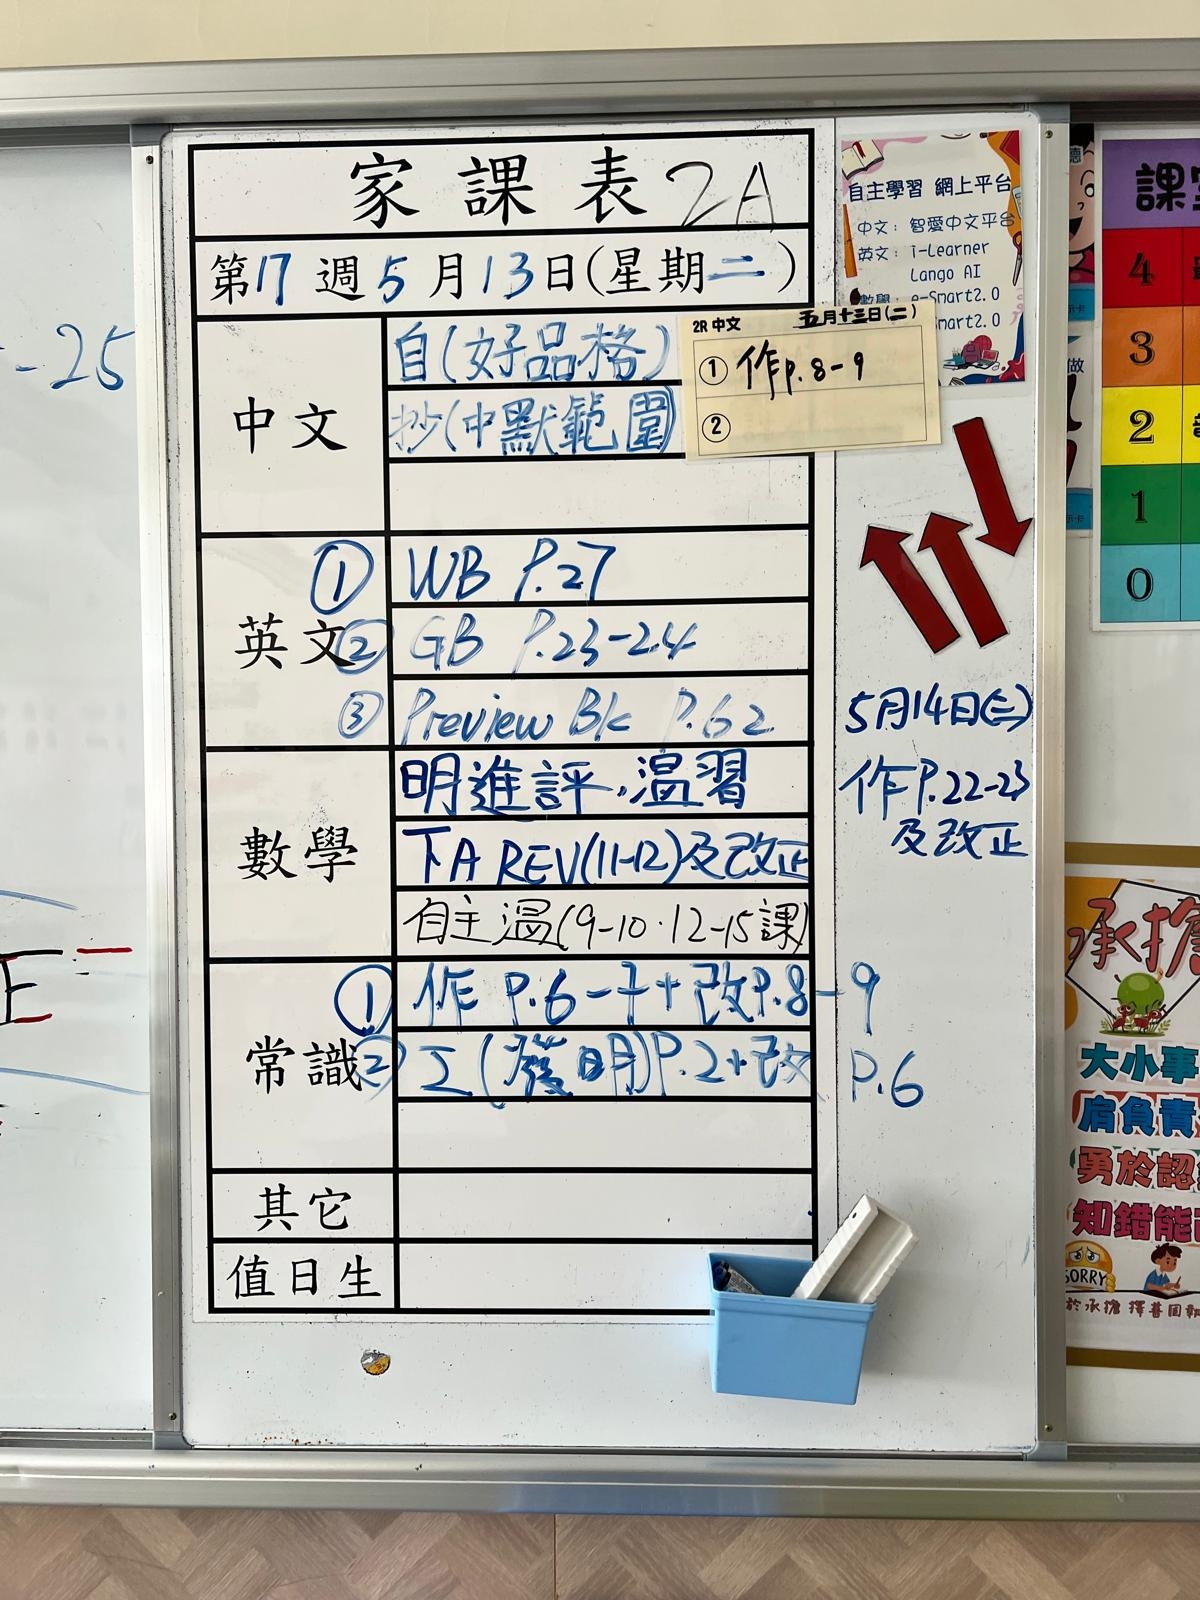 家課表 2A
第17週5月13日(星期二)
中文
自(好品格)
抄(中默範圍)
2R 中文 五月十三日(二)
① 作p.8-9
②
英文
① WB P.27
② GB P.23-24
③ Preview Bk P.62
數學
明進評,溫習
下A REV(11-12)及改正
自主溫(9-10·12-15課)
常識
① 作 P.6-7+改P.8-9
② 工(發明)P.2+改 P.6
其它
值日生
自主學習 網上平台
中文：智愛中文平台
英文：i-Learner
Lango AI
數學：e-Smart2.0
Smart2.0
5月14日(三)
作P.22-23
及改正
-25
課
4
3
2
1
0
承擔
大小事
肩負責
勇於認
知錯能
SORRY
於承擔 擇善固執